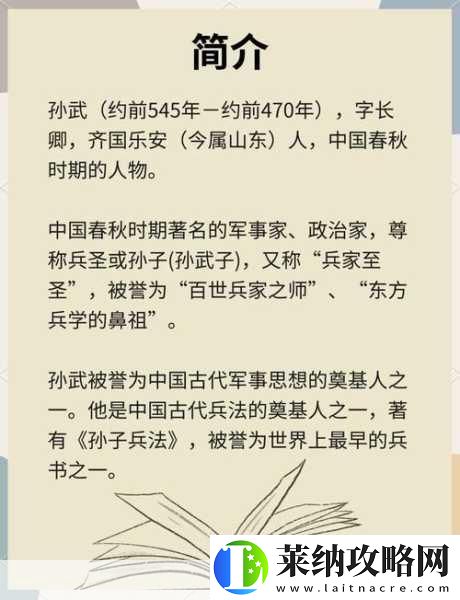 简介
孙武（约前545年－约前470年），字长
卿，齐国乐安（今属山东）人，中国春秋
时期的人物。
中国春秋时期著名的军事家、政治家，尊
称兵圣或孙子(孙武子)，又称“兵家至
圣”，被誉为“百世兵家之师”、“东方
兵学的鼻祖”。
孙武被誉为中国古代军事思想的奠基人之
一。他是中国古代兵法的奠基人之一，著
有《孙子兵法》，被誉为世界上最早的兵
书之一。
莱纳攻略网
www.laitnacre.com